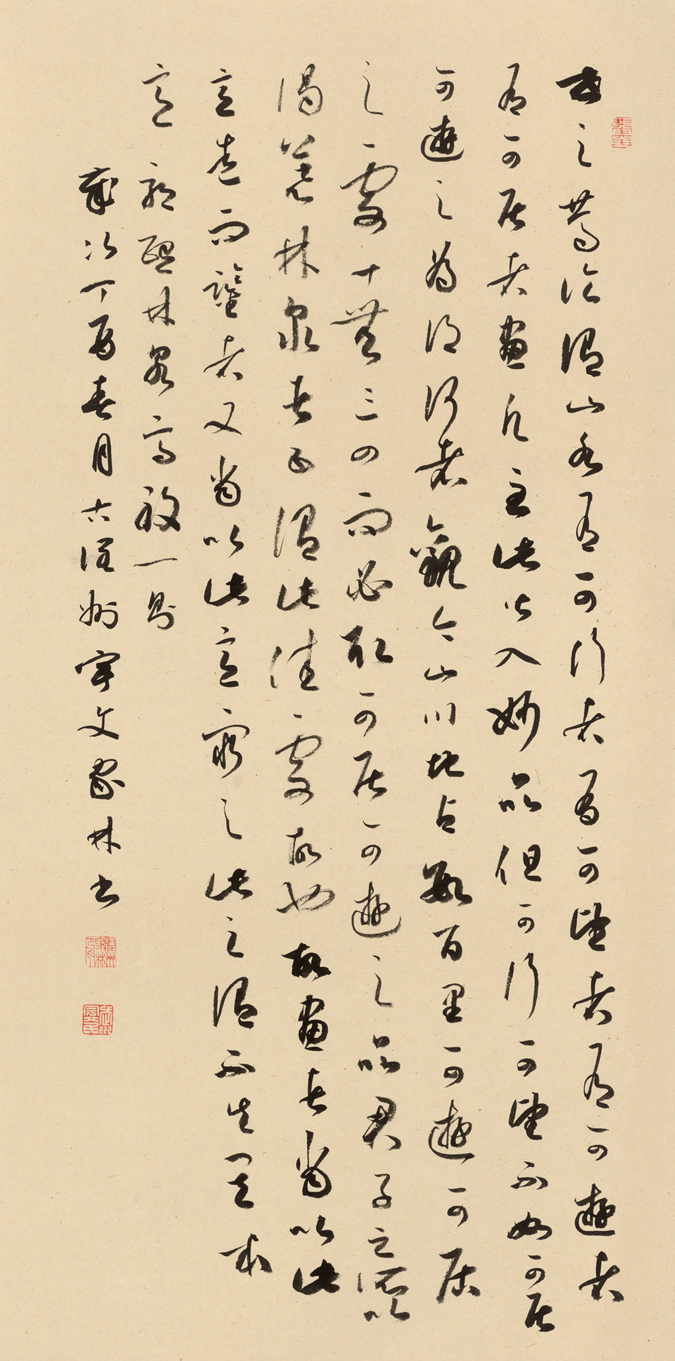 世之篤論謂山水有可行者有可望者有可遊者
有可居者畫凡至此皆入妙品但可行可望不如可居
可遊之為得何者觀今山川地占數百里可遊可居
之處十無三四而必取可居可遊之品君子之所以
渴慕林泉者正謂此佳處故也故畫者當以此
意造而鑒者又當以此意窮之此之謂不失其本
意 郭熙林泉高致一則
歲次丁酉春月古潤州宇文家林書